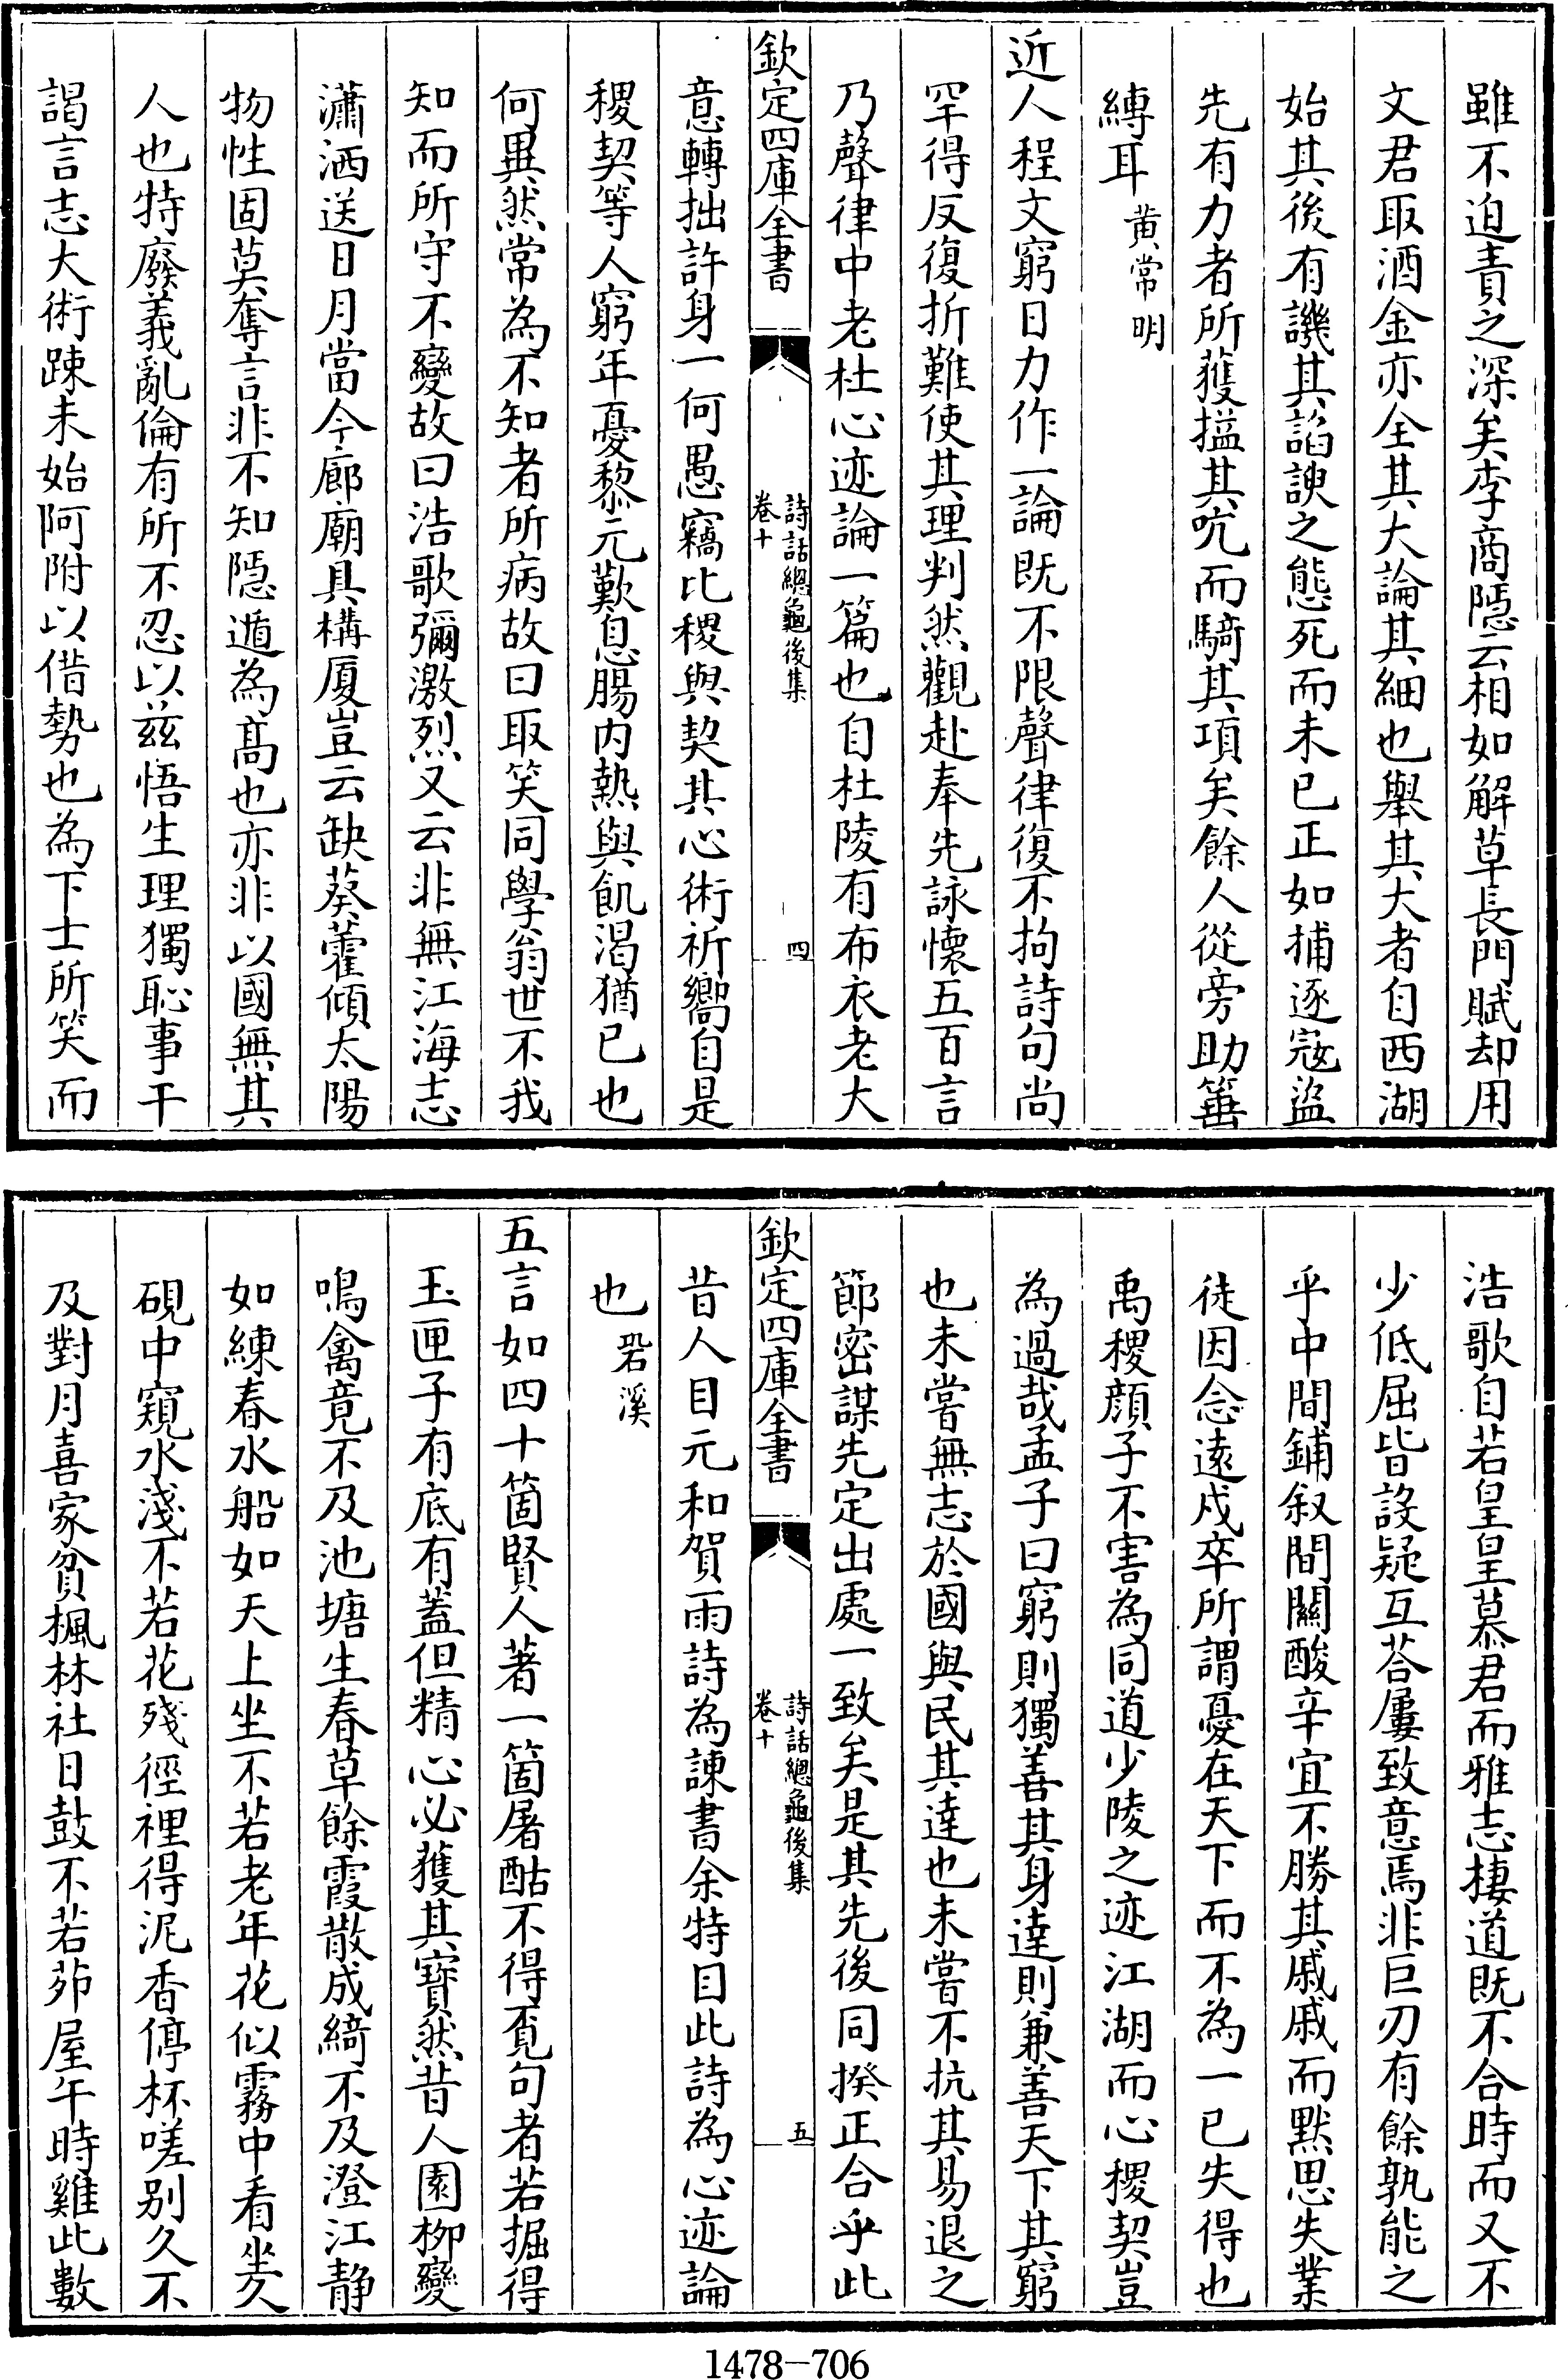 雖不迫責之深矣李商隱云相如解草長門賦却用
文君取酒金亦全其大論其細也舉其大者自西湖
始其後有譏其諂諛之態死而未已正如捕逐寇盜
先有力者所獲搤其吭而騎其項矣餘人從旁助箠
縛耳黄常明
近人程文窮日力作一論既不限聲律復不拘詩句尚
罕得反復折難使其理判然觀赴奉先詠懷五百言
乃聲律中老杜心迹論一篇也自杜陵有布衣老大
欽定四庫全書
詩話總龜後集
卷十
四
意轉拙許身一何愚竊比稷與契其心術祈嚮自是
稷契等人窮年憂黎元歎息腸内熱與飢渴猶已也
何異然常為不知者所病故曰取笑同學翁世不我
知而所守不變故曰浩歌彌激烈又云非無江海志
瀟洒送日月當今廊廟具構厦豈云缺葵藿傾太陽
物性固莫奪言非不知隱遁為髙也亦非以國無其
人也特廢義亂倫有所不忍以兹悟生理獨恥事干
謁言志大術踈未始阿附以借勢也為下士所笑而
浩歌自若皇皇慕君而雅志棲道既不合時而又不
少低屈皆設疑互荅屢致意焉非巨刃有餘孰能之
乎中間鋪叙間關酸辛宜不勝其戚戚而黙思失業
徒因念遠戍卒所謂憂在天下而不為一已失得也
禹稷顔子不害為同道少陵之迹江湖而心稷契豈
為過哉孟子曰窮則獨善其身達則兼善天下其窮
也未嘗無志於國與民其達也未嘗不抗其易退之
節密謀先定出處一致矣是其先後同揆正合乎此
欽定四庫全書
詩話總龜後集
卷十
五
昔人目元和賀雨詩為諫書余特目此詩為心迹論
也䂬溪
五言如四十箇賢人著一箇屠酤不得覔句者若掘得
玉匣子有底有蓋但精心必獲其寳然昔人園柳變
鳴禽竟不及池塘生春草餘霞散成綺不及澄江静
如練春水船如天上坐不若老年花似霧中看坐久
硯中窺水淺不若花殘徑裡得泥香停杯嗟别久不
及對月喜家貧楓林社日鼓不若茆屋午時雞此數
1478-706